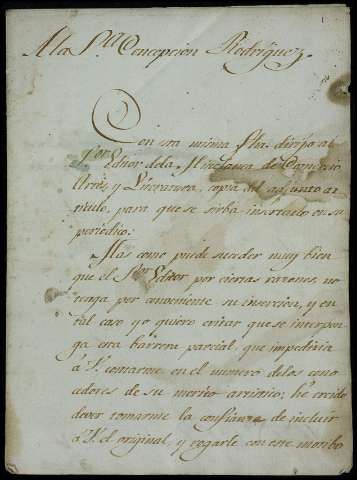 A la S.ra Concepcion Rodriguez.
Con esta misma fha dirijo al
S.or Editor dela Miscelanea de Comercio
Artes, y Literatura, copia del adjunto ar
ticulo, para que se sirba insertarlo en su
periodico:
Mas como puede suceder muy bien
que el S.or Editor por ciertas razones, no
tenga por conveniente su insercion, y en
tal caso yo quiero evitar que se interpon
ga esta barrera parcial, que impediria
á V. contarme en el numero delos cono
cedores de su merito artistico; hé creido
dever tomarme la confianza de incluir
á V. el original, y rogarle con este motibo